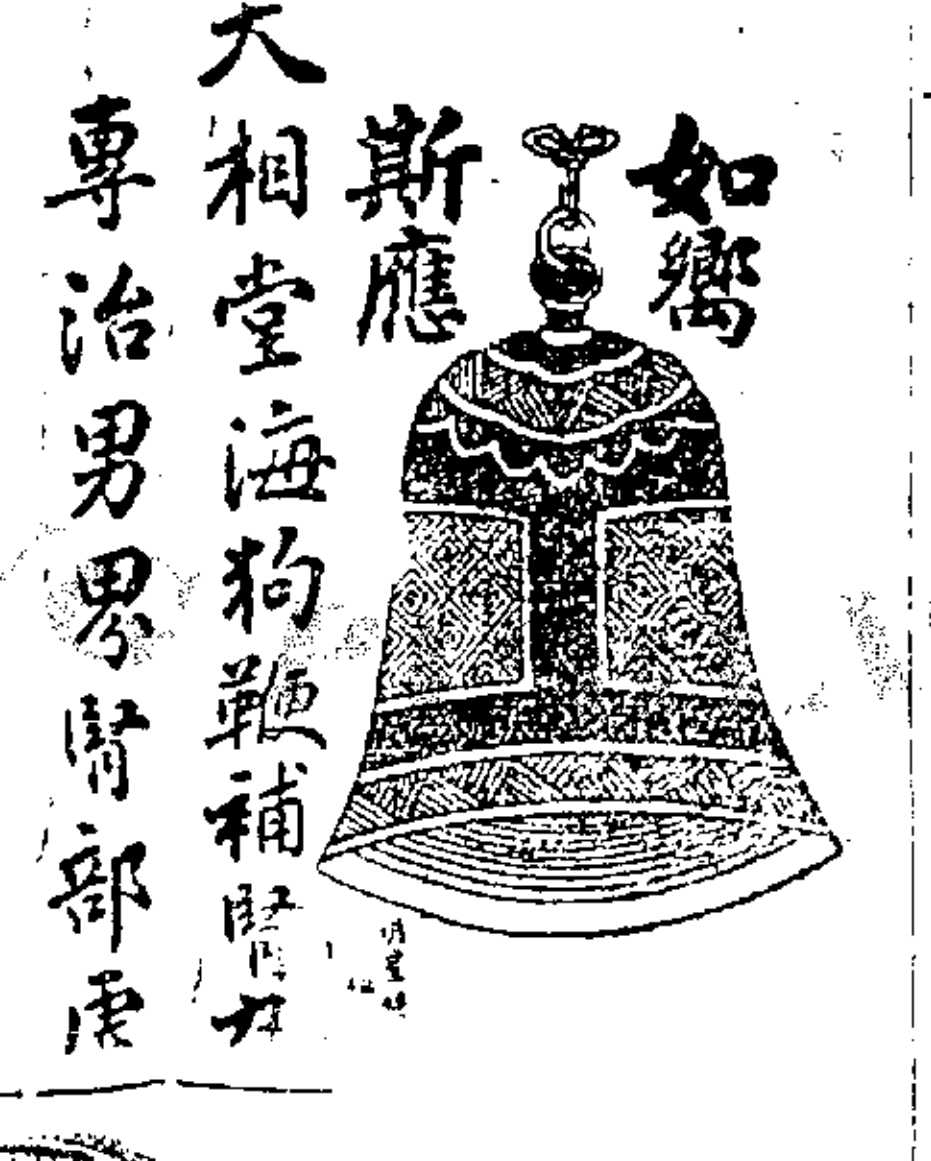 如嚮
斯應
大相堂海狗鞭補腎
專治男界腎部虛